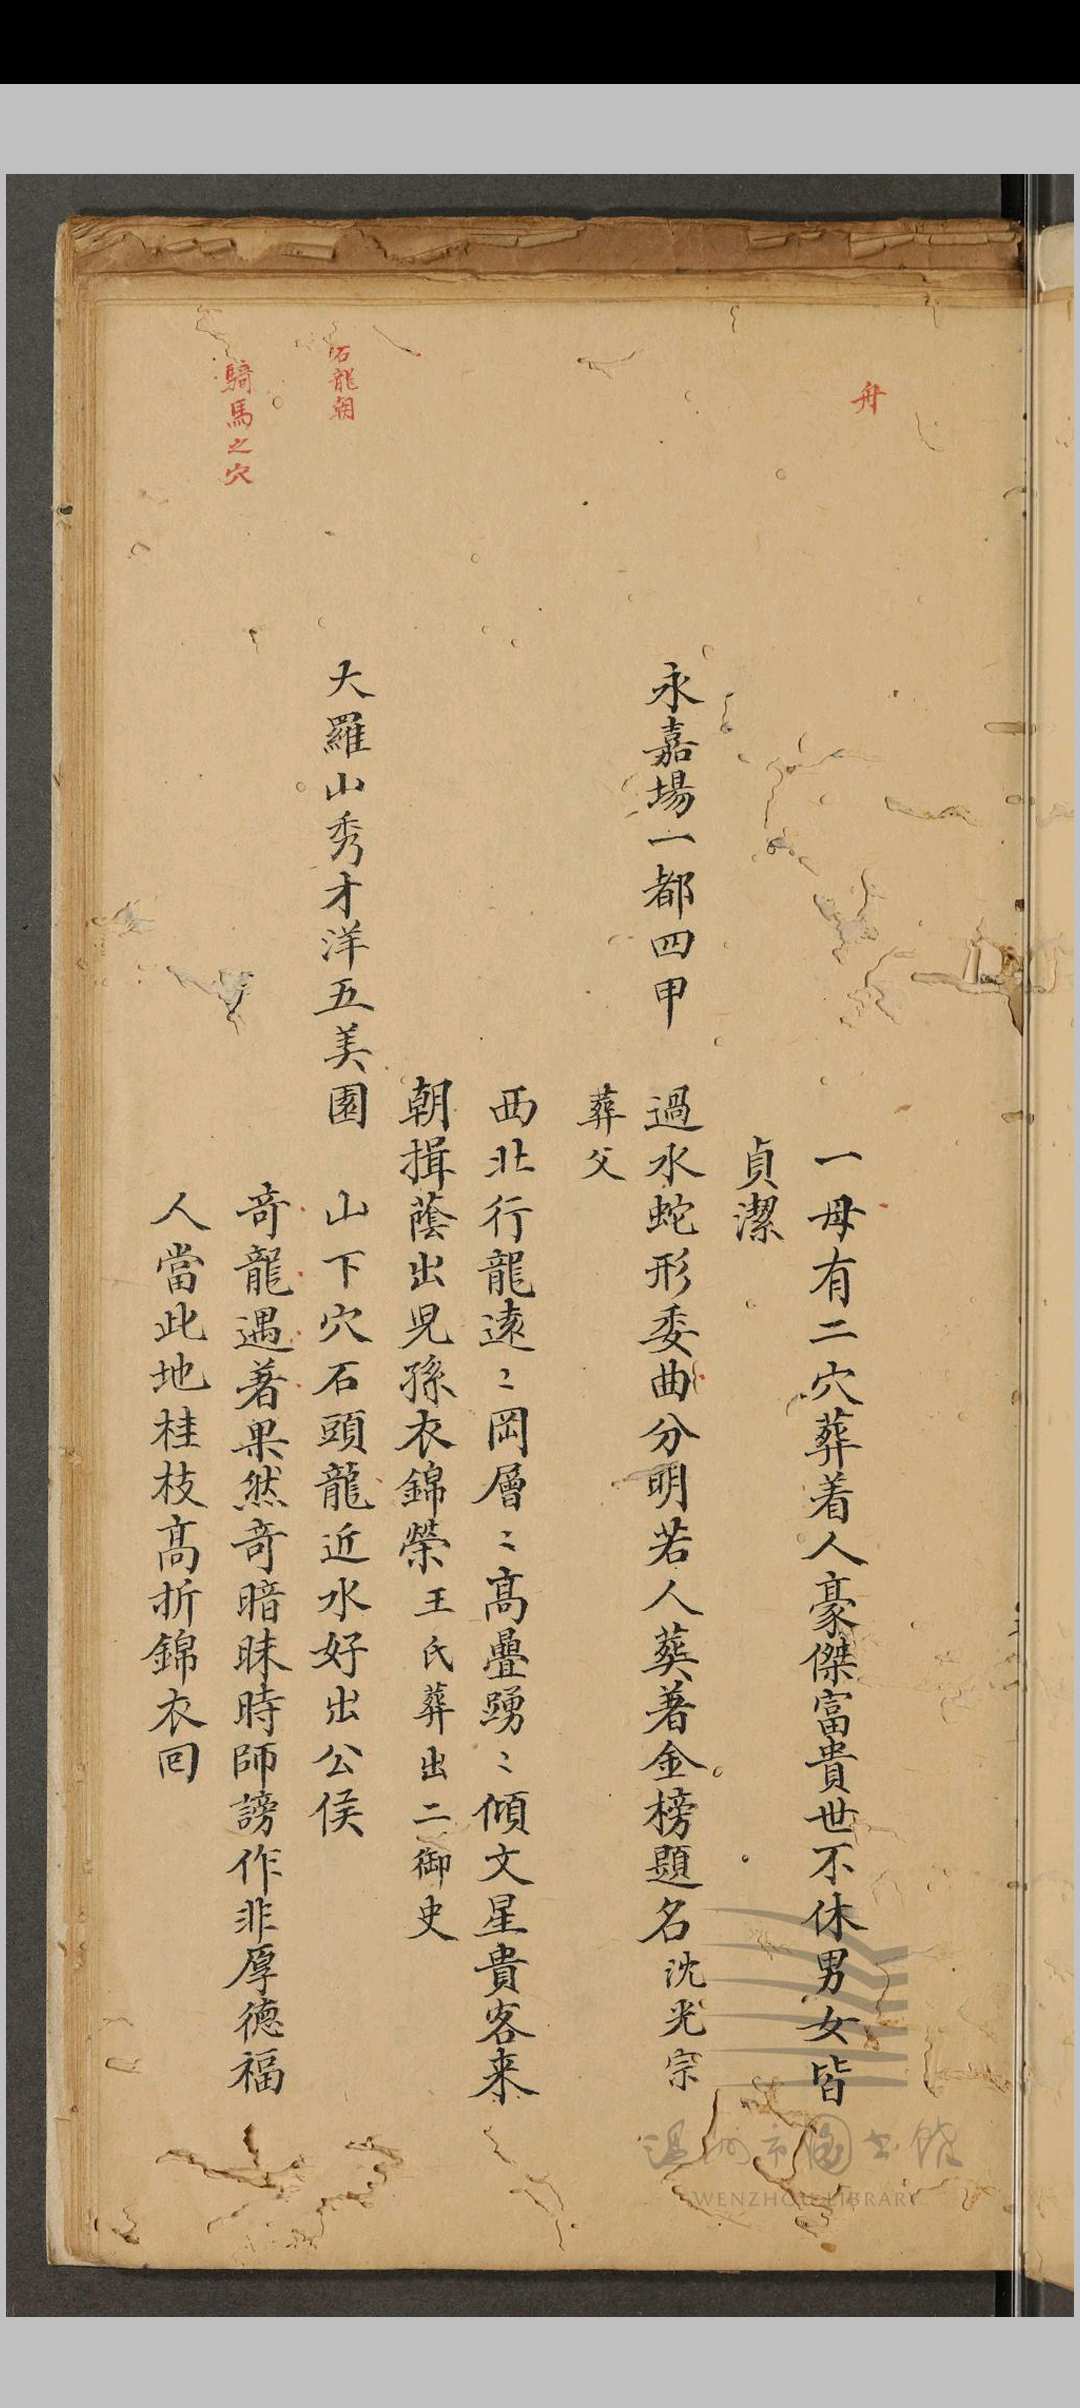 舟
一母有二穴葬着人豪傑富貴世不休男女皆
貞潔
永嘉場一都四甲
過水蛇形委曲分明若人葵著金榜題名沈光宗
葬父
西北行龍遠〻岡層〻高疊踴〻傾文星貴客来
朝揖蔭出児孫衣錦榮王氏葬出二御史
石龍朝
大羅山秀才洋五美園
山下穴石頭龍近水好出公侯
騎馬之穴
竒龍遇著果然竒暗昧時師謗作非厚德福
人當此地桂枝髙折錦衣囘
温州市图书馆
WENZHOU LIBRARY